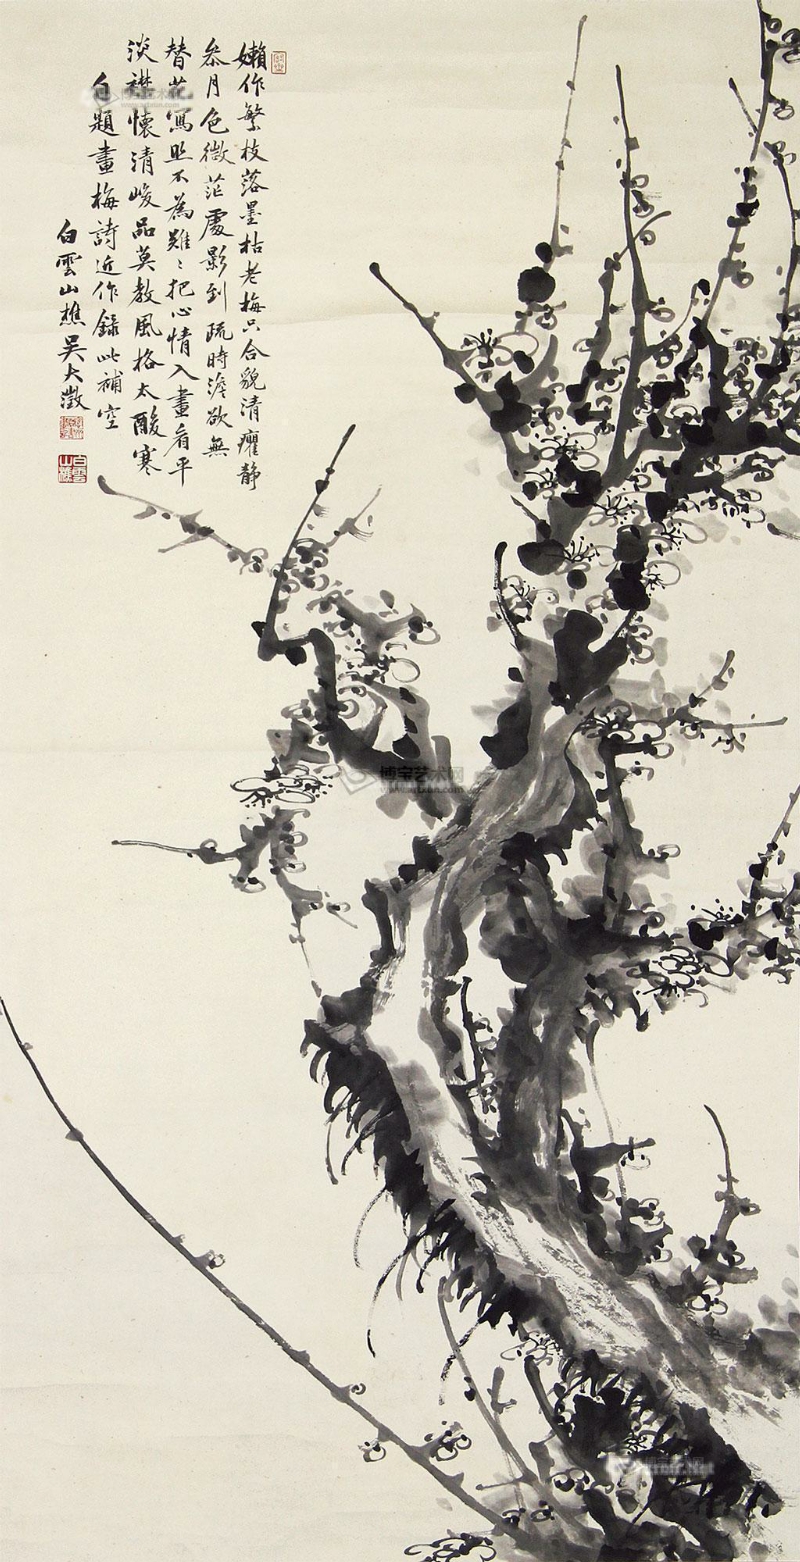 嬾作繁枝落墨枯老梅只合貌清癯静
参月色微茫處影到疏時澹欲無
替花寫照不為難〻把心情入畫看平
淡襟懷清峻品莫教風格太酸寒
自題畫梅詩近作錄此補空
白雲山樵吳大澂
白雲山樵
博宝艺术网
www.artxun.com